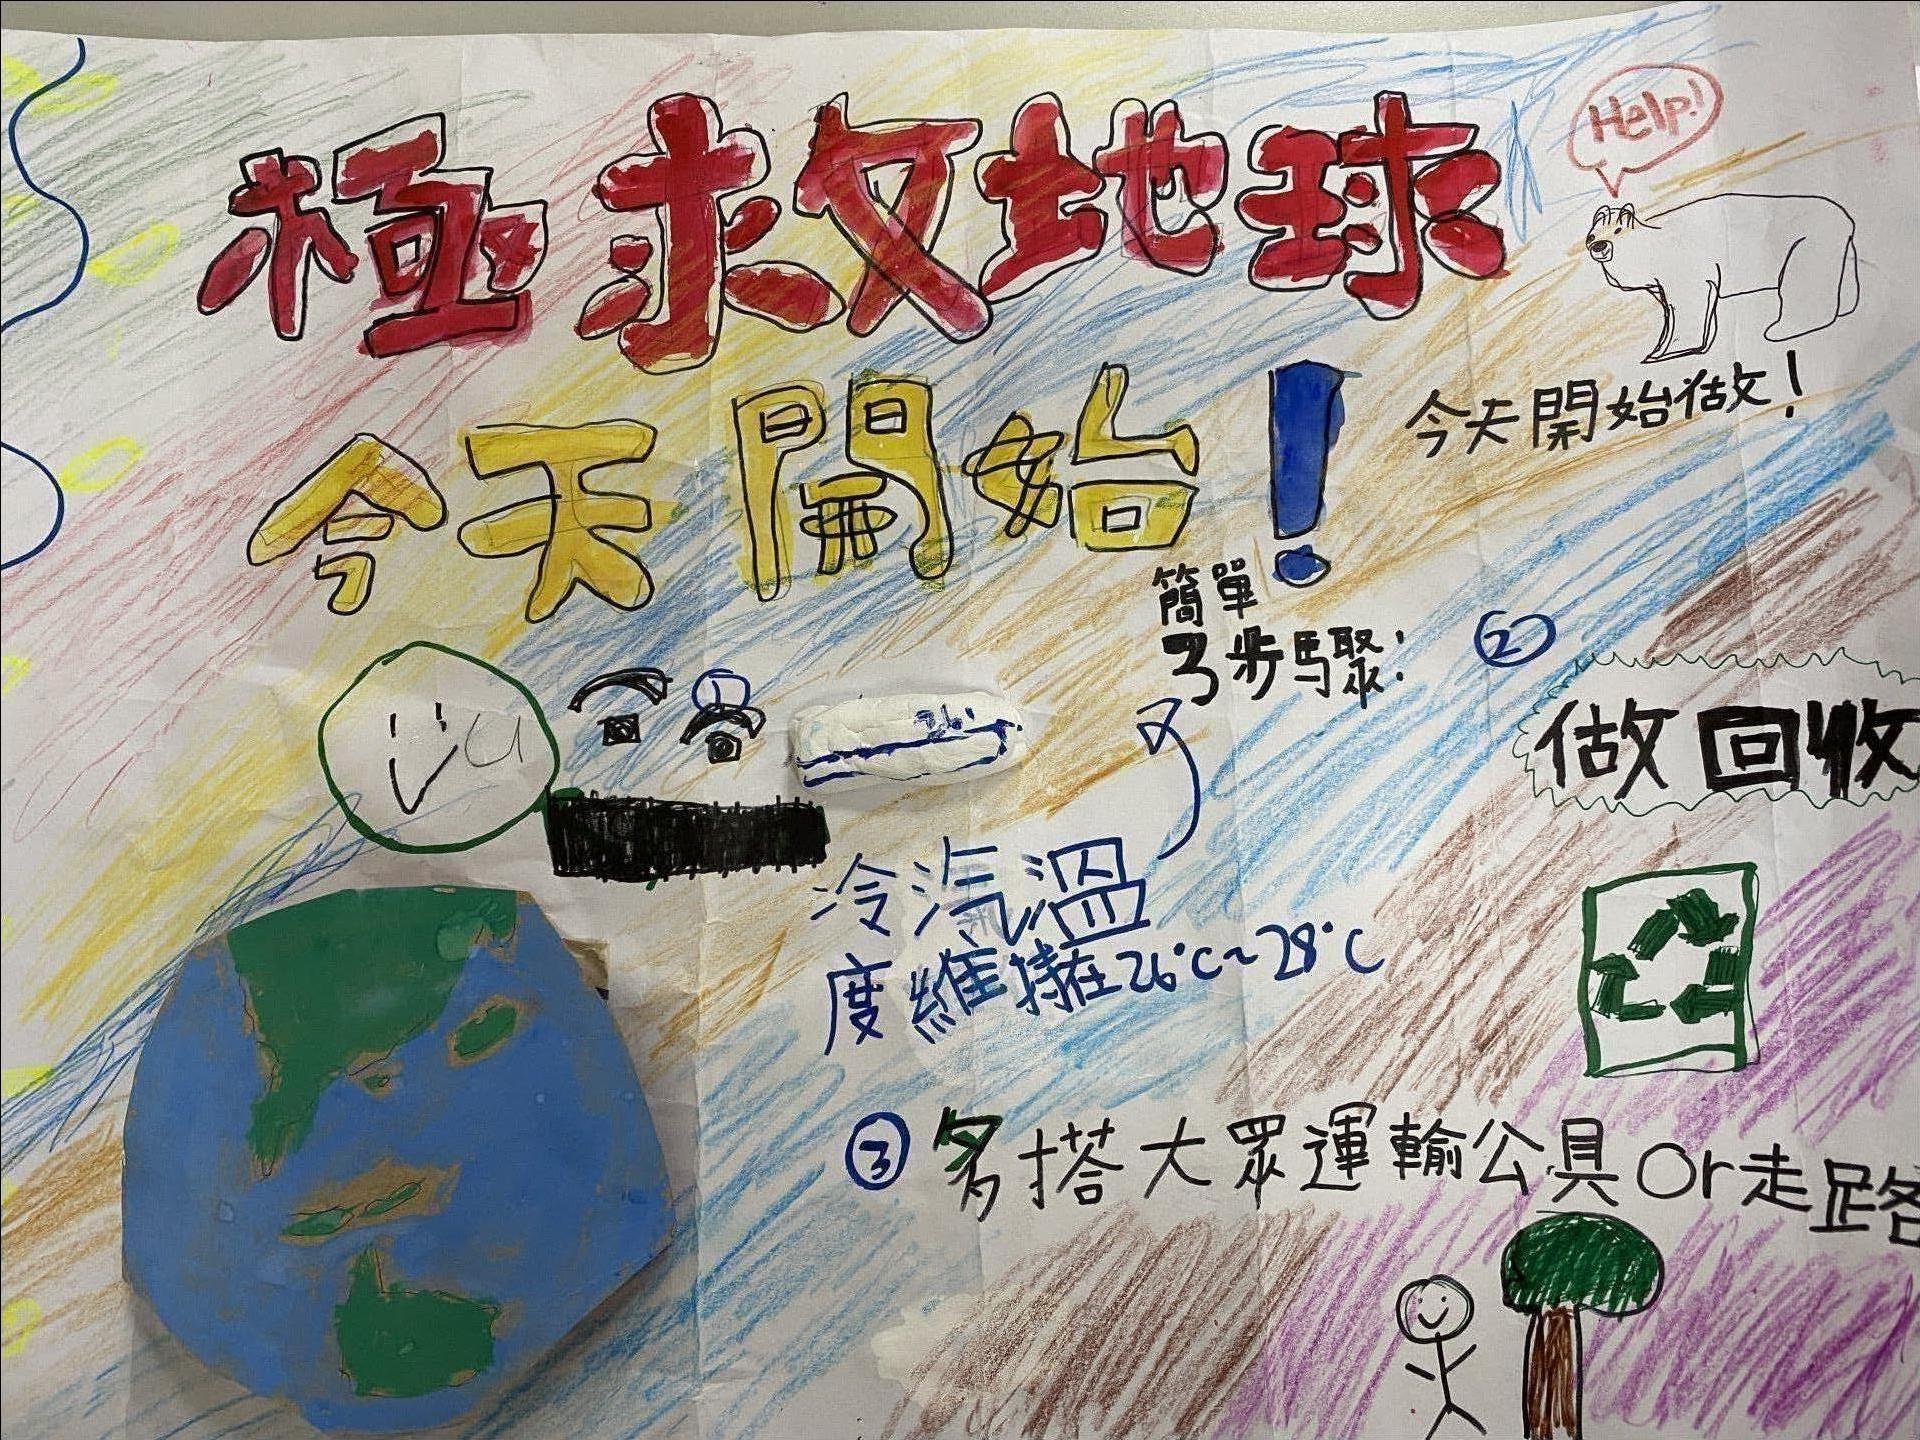 極救地球
Help!
今天開始!
今天開始做!
簡單
3步驟:
冷汽溫
度維持在26°C~28°C
②
做回收
③多搭大眾運輸公具Or走路